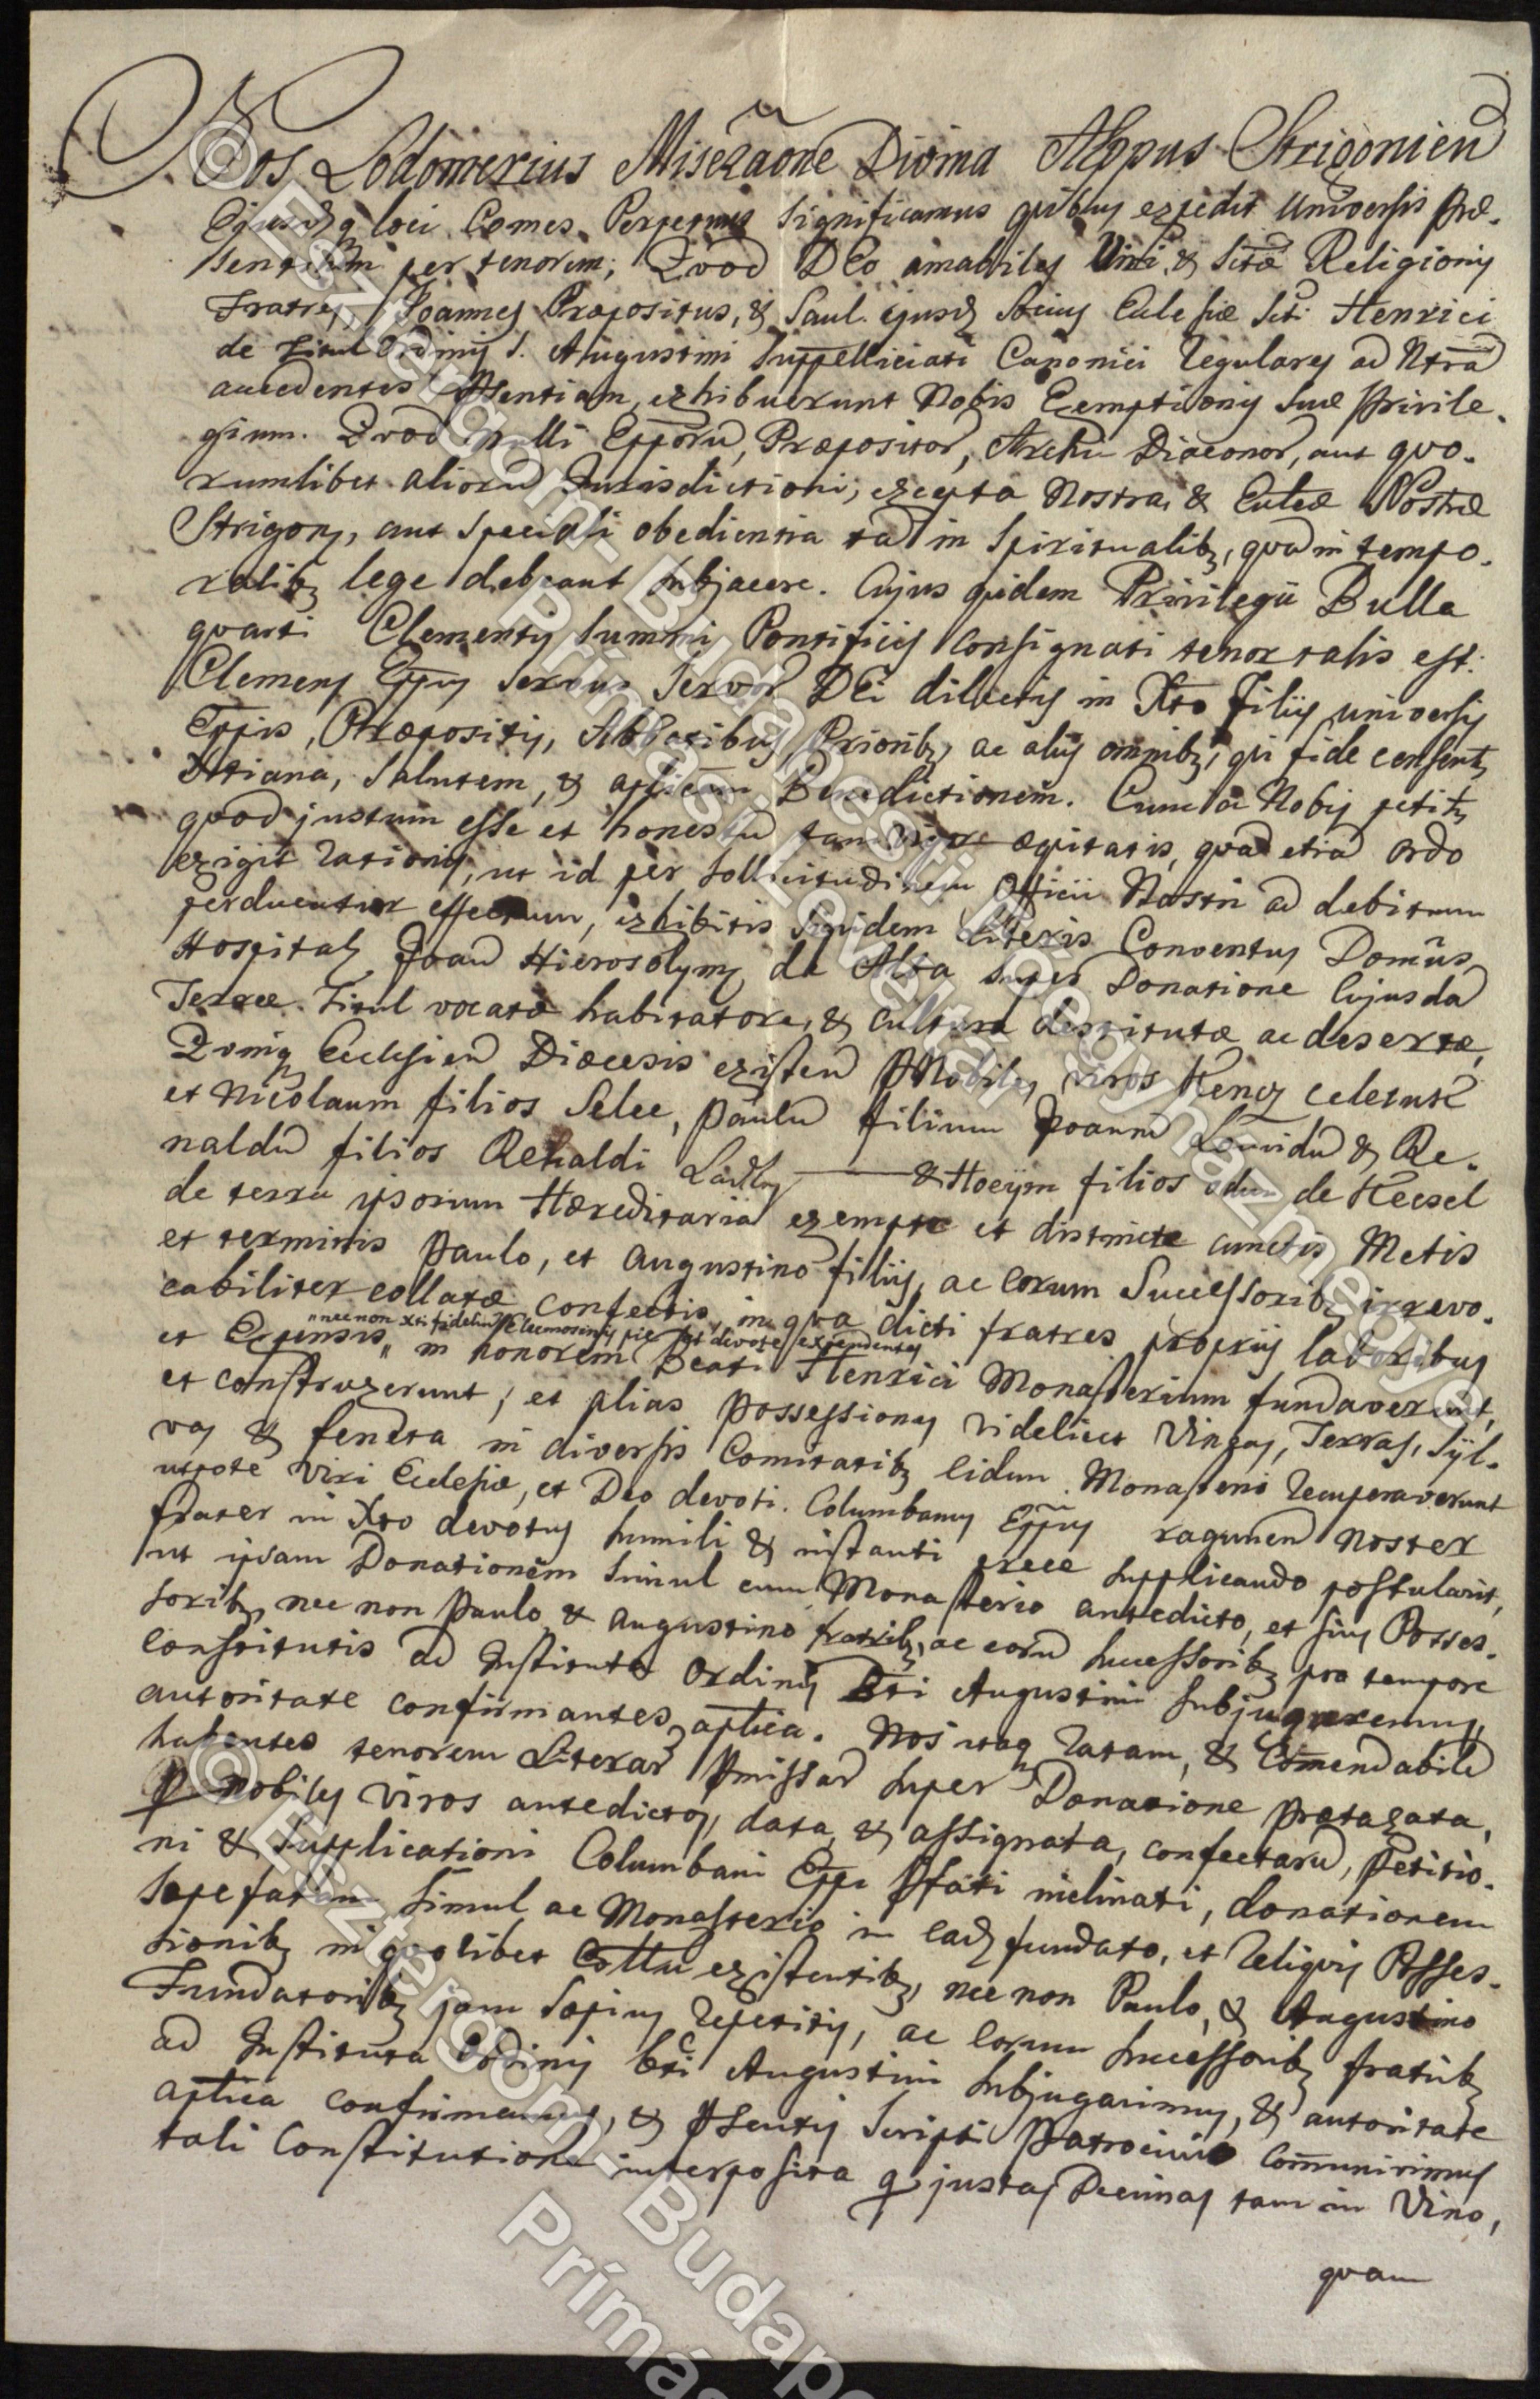 Nos Lodomerius Miseraõne Divina AEppus Strigonien
Ejusdq loci Comes Perpetuus significamus quibus expedit Universis Præ-
sentium per tenorem; Quod DEo amabiles Viri, & Sctæ Religionis
Fratres, Joannes Præpositus, & Paul. ejusd Socius Eclesiæ Scti Henrici
de Titul Ordinis S. Augustini Suppelliciati Canonici Regulares ad Nrãm
accedentes Psentiam, exhibuerunt Nobis Exemptionis suæ Privile-
gium. Quod nulli Epporu, Præpositor, Archi Diaconor, aut quo-
rumlibet alioru Jurisdictioni, excepta Nostra, & Eccleæ Nostræ
Strigon, aut speciali obedientia tam in Spiritualib, quam in tempo-
ralib lege debeant subjacere. Cujus quidem Privilegii Bulla
quarti Clementis Summi Pontificis consignati tenor talis est:
Clemens Eppus Servus Servor DEi dilectis in Xto Filiis universis
Eppis, Præpositis, Abbatibus, Prioribs, ac aliis omnibs, qui fide censent
Xtiana, Salutem, & aplicam Benedictionem. Cum a Nobis petitr
quod justum esse et honestu tam vigor æquitatis, quam etiam ordo
exigit rationis, ut id per sollicitudinem Officii Nostri ad debitum
perducatur effectum, exhibitis siquidem Literis Conventus Domûs
Hospital Joan Hierosolym de Alba super Donatione cujusda
Terræ Titul vocatæ habitatore, & cultura destitutæ ac desertæ,
Quinq Ecclesien Diæcesis existen P Nobiles viros Kenez
et Nicolaum filios Selce, Paulu filium Joannis & Re-
naldu filios Renaldi Ladlaus & filios de Kecsel
de terra ipsorum Hæreditaria exemptæ et distinctæ cunctis Metis
et terminis Paulo, et Augustino filiis, ac eorum Successorib irrevo-
cabiliter collatæ confectis, in qva dicti fratres propriis laboribus
et Expensis, „nec non Xti fidelium Eleemosinis pie, et devote expendentes in honorem Beati Henrici Monasterium fundaverunt,
et construxerunt; et alias possessiones videlicet Vineas, Terras, Syl-
vas & feneta in diversis Comitatib eidem Monasterio recuperaverunt
utpote Viri Eclesiæ, et Deo devoti. Columbanus Eppus ragunen Noster
frater in Xto devotus humili & instanti prece supplicando postularit,
ut ipsam Donationem simul cum Monasterio antedicto, et suis Posses-
sorib, nec non Paulo & Augustino fratrib, ac eoru successorib pro tempore
constitutis ad Instituta Ordinis Bti Augustini subjugaremus
autoritate confirmantes aplica. Nos itaq ratam, & Comendabile
habentes tenorem Literar Pmissar super Donatione prætaxata,
P nobiles viros antedictos, data, & assignata, confectaru, Petitio-
ni & supplicationi Columbani Eppi Pfati inclinati, donationem
sæpefatam simul ac Monasterio in ead fundato, et reliquis Posses-
sionib in quolibet Cottu existentib, nec non Paulo, & Augustino
Fundatorib jam sæpius repetitis, ac eorum successorib fratrib
ad Instituta Ordinis bti Augustini subjugarimus, & autoritate
aplica confirmamus, & Psentis Scripti patrocinio communirimus
tali Constitutione interposita q justas Decimas tam in Vino,
quam